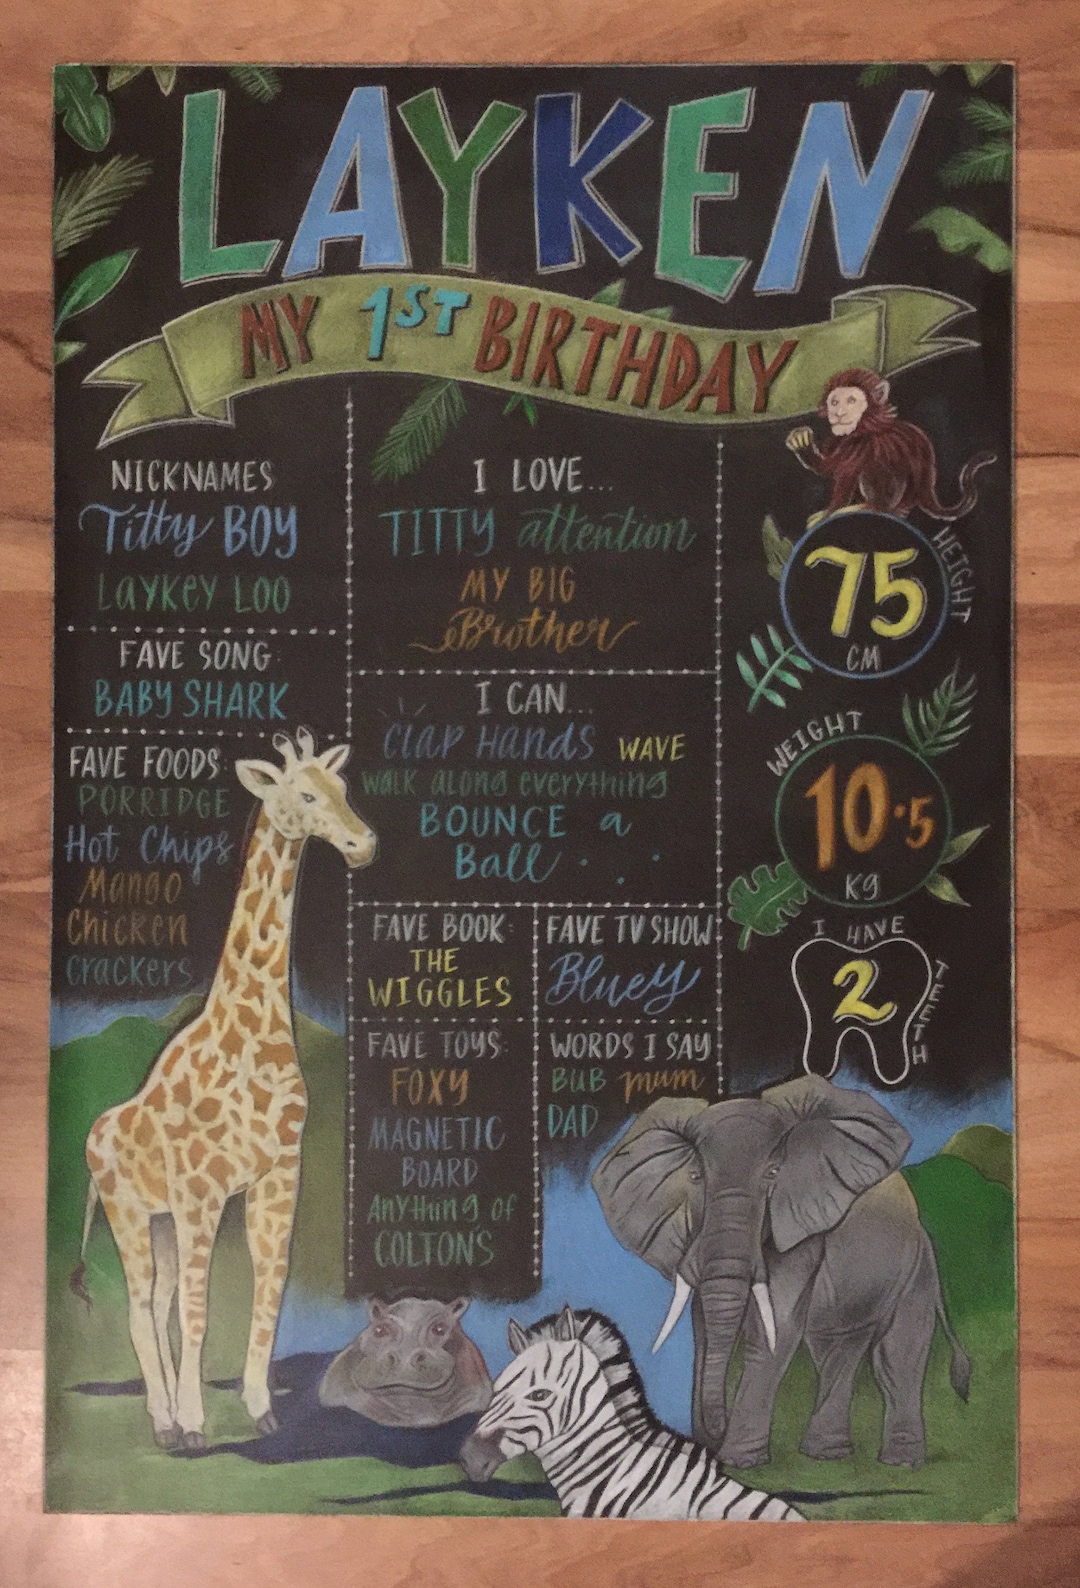 LAYKEN
MY 1ST BIRTHDAY
NICKNAMES
Titty BOY
Laykey Loo
FAVE SONG:
BABY SHARK
FAVE FOODS:
PORRIDGE
Hot Chips
Mango
Chicken
crackers
I LOVE...
TITTY attention
MY BIG
Brother
I CAN...
Clap Hands WAVE
walk along everything
BOUNCE a
Ball
FAVE BOOK:
THE
WIGGLES
FAVE TV SHOW:
Bluey
FAVE TOYS:
FOXY
MAGNETIC
BOARD
Anything of
COLTON'S
WORDS I SAY
BUB mum
DAD
HEIGHT
75
CM
WEIGHT
10.5
Kg
I HAVE
2
TEETH